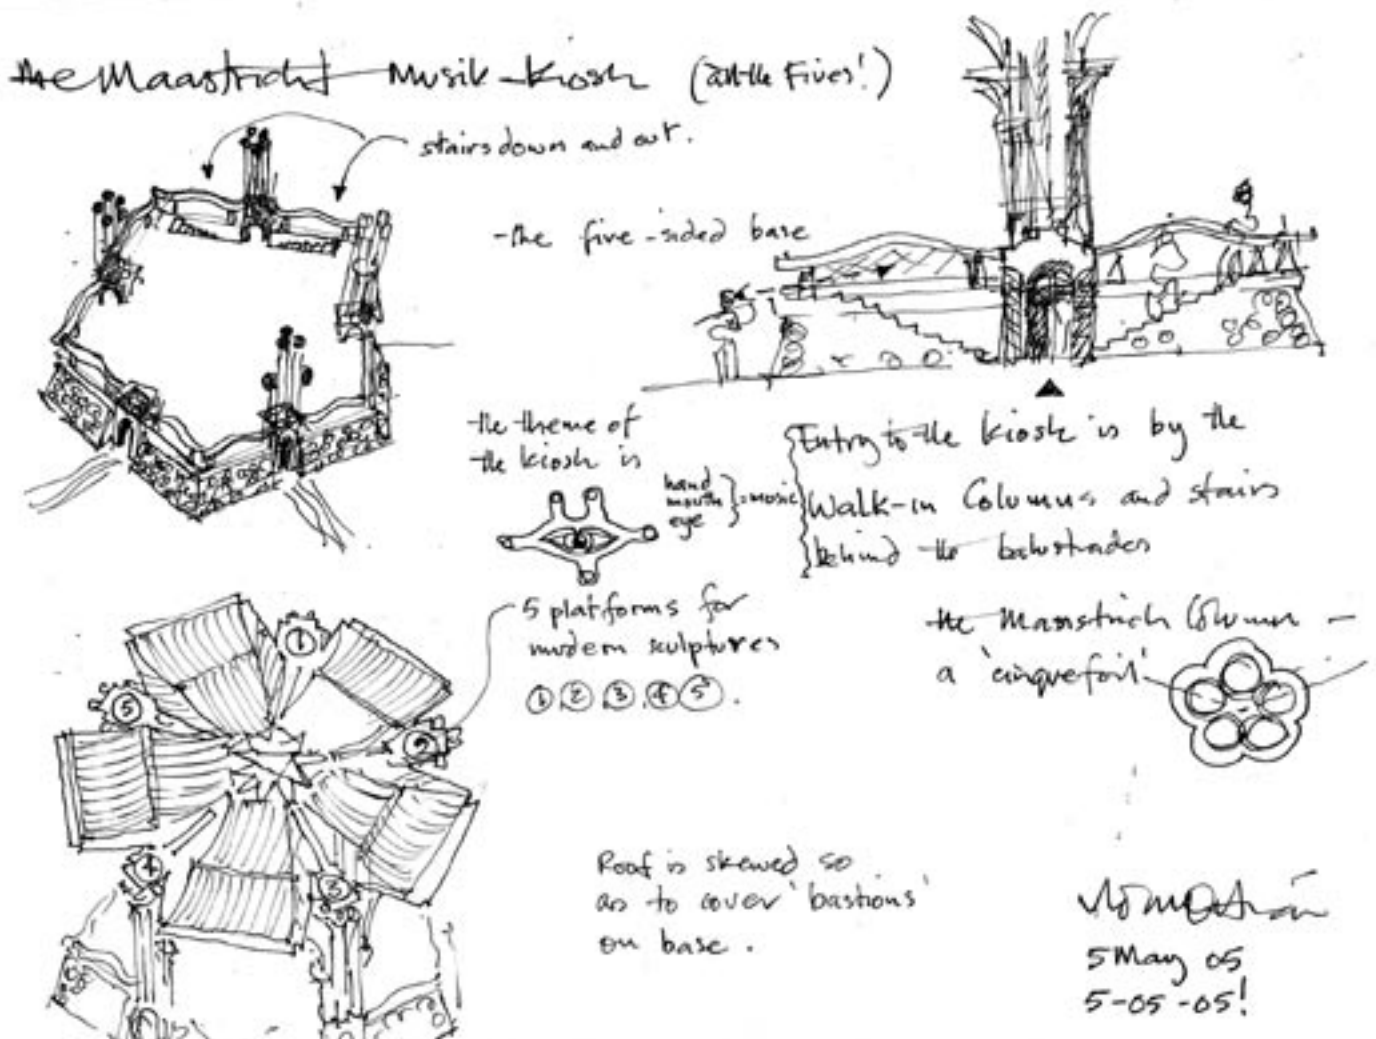 the Maastricht Musik-Kiosk (all the Fives!)
stairs down and out.
- the five-sided base
the theme of
the kiosk is
hand
mouth
eye
= music
Entry to the kiosk is by the
Walk-in Columns and stairs
behind the balustrades
5 platforms for
modern sculptures
1 2 3 4 5.
the Maastrich Column -
a 'cinquefoil'
1
5
2
4
3
Roof is skewed so
as to cover 'bastions'
on base.
5 May 05
5-05-05!